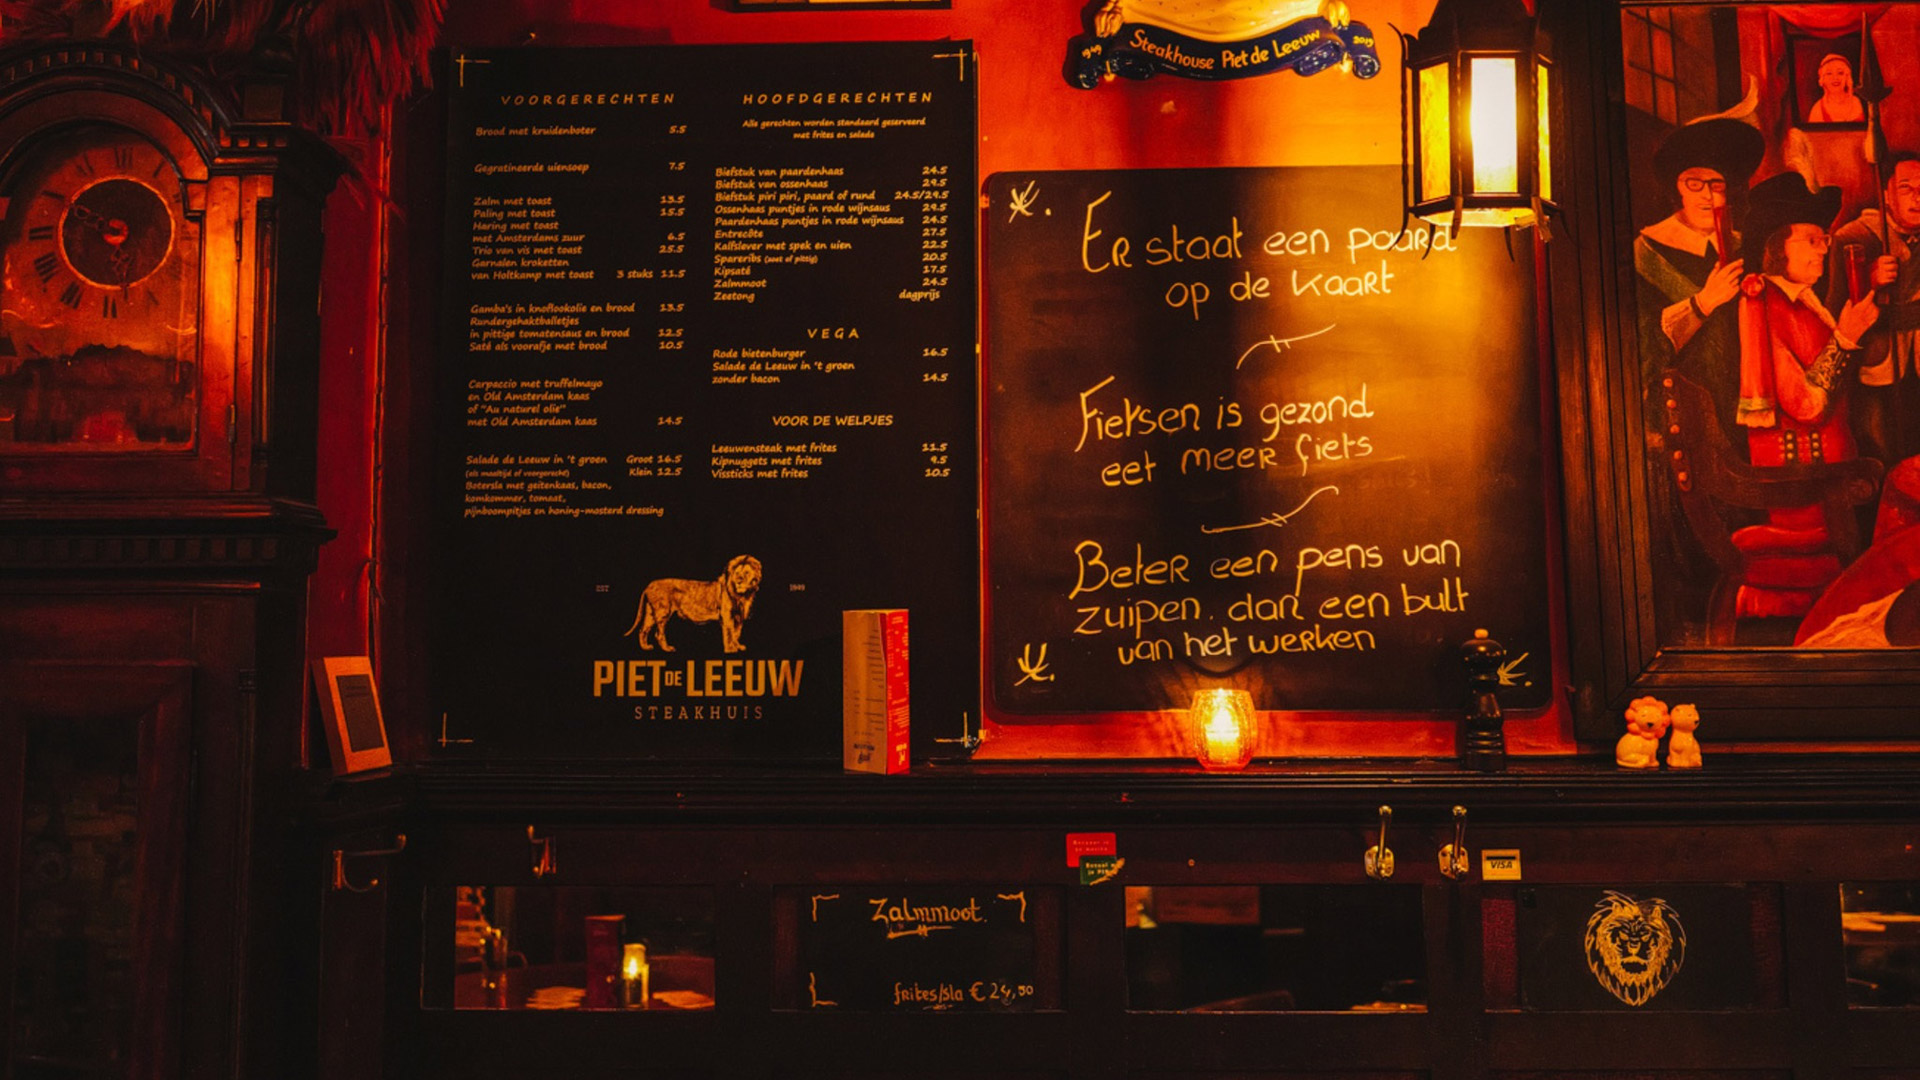 Steakhouse Piet de Leeuw
1949
2019
VOORGERECHTEN
Brood met kruidenboter 5.5
Gegratineerde uiensoep 7.5
Zalm met toast 13.5
Paling met toast 15.5
Haring met toast
met Amsterdams zuur 6.5
Trio van vis met toast 25.5
Garnalen kroketten
van Holtkamp met toast 3 stuks 11.5
Gamba's in knoflookolie en brood 13.5
Rundergehaktballetjes
in pittige tomatensaus en brood 12.5
Saté als voorafje met brood 10.5
Carpaccio met truffelmayo
en Old Amsterdam kaas
of "Au naturel olie"
met Old Amsterdam kaas 14.5
Salade de Leeuw in 't groen Groot 16.5
(als maaltijd of voorgerecht) Klein 12.5
Botersla met geitenkaas, bacon,
komkommer, tomaat,
pijnboompitjes en honing-mosterd dressing
HOOFDGERECHTEN
Alle gerechten worden standaard geserveerd
met frites en salade
Biefstuk van paardenhaas 24.5
Biefstuk van ossenhaas 29.5
Biefstuk piri piri, paard of rund 24.5/29.5
Ossenhaas puntjes in rode wijnsaus 29.5
Paardenhaas puntjes in rode wijnsaus 24.5
Entrecôte 27.5
Kalfslever met spek en uien 22.5
Spareribs (zoet of pittig) 20.5
Kipsaté 17.5
Zalmmoot 24.5
Zeetong dagprijs
VEGA
Rode bietenburger 16.5
Salade de Leeuw in 't groen
zonder bacon 14.5
VOOR DE WELPJES
Leeuwensteak met frites 11.5
Kipnuggets met frites 9.5
Vissticks met frites 10.5
EST 1949
PIET DE LEEUW
STEAKHUIS
Er staat een paard
op de kaart
Fietsen is gezond
eet meer fiets
Beter een pens van
zuipen. dan een bult
van het werken
VISA
Zalmmoot.
frites/sla € 24,50